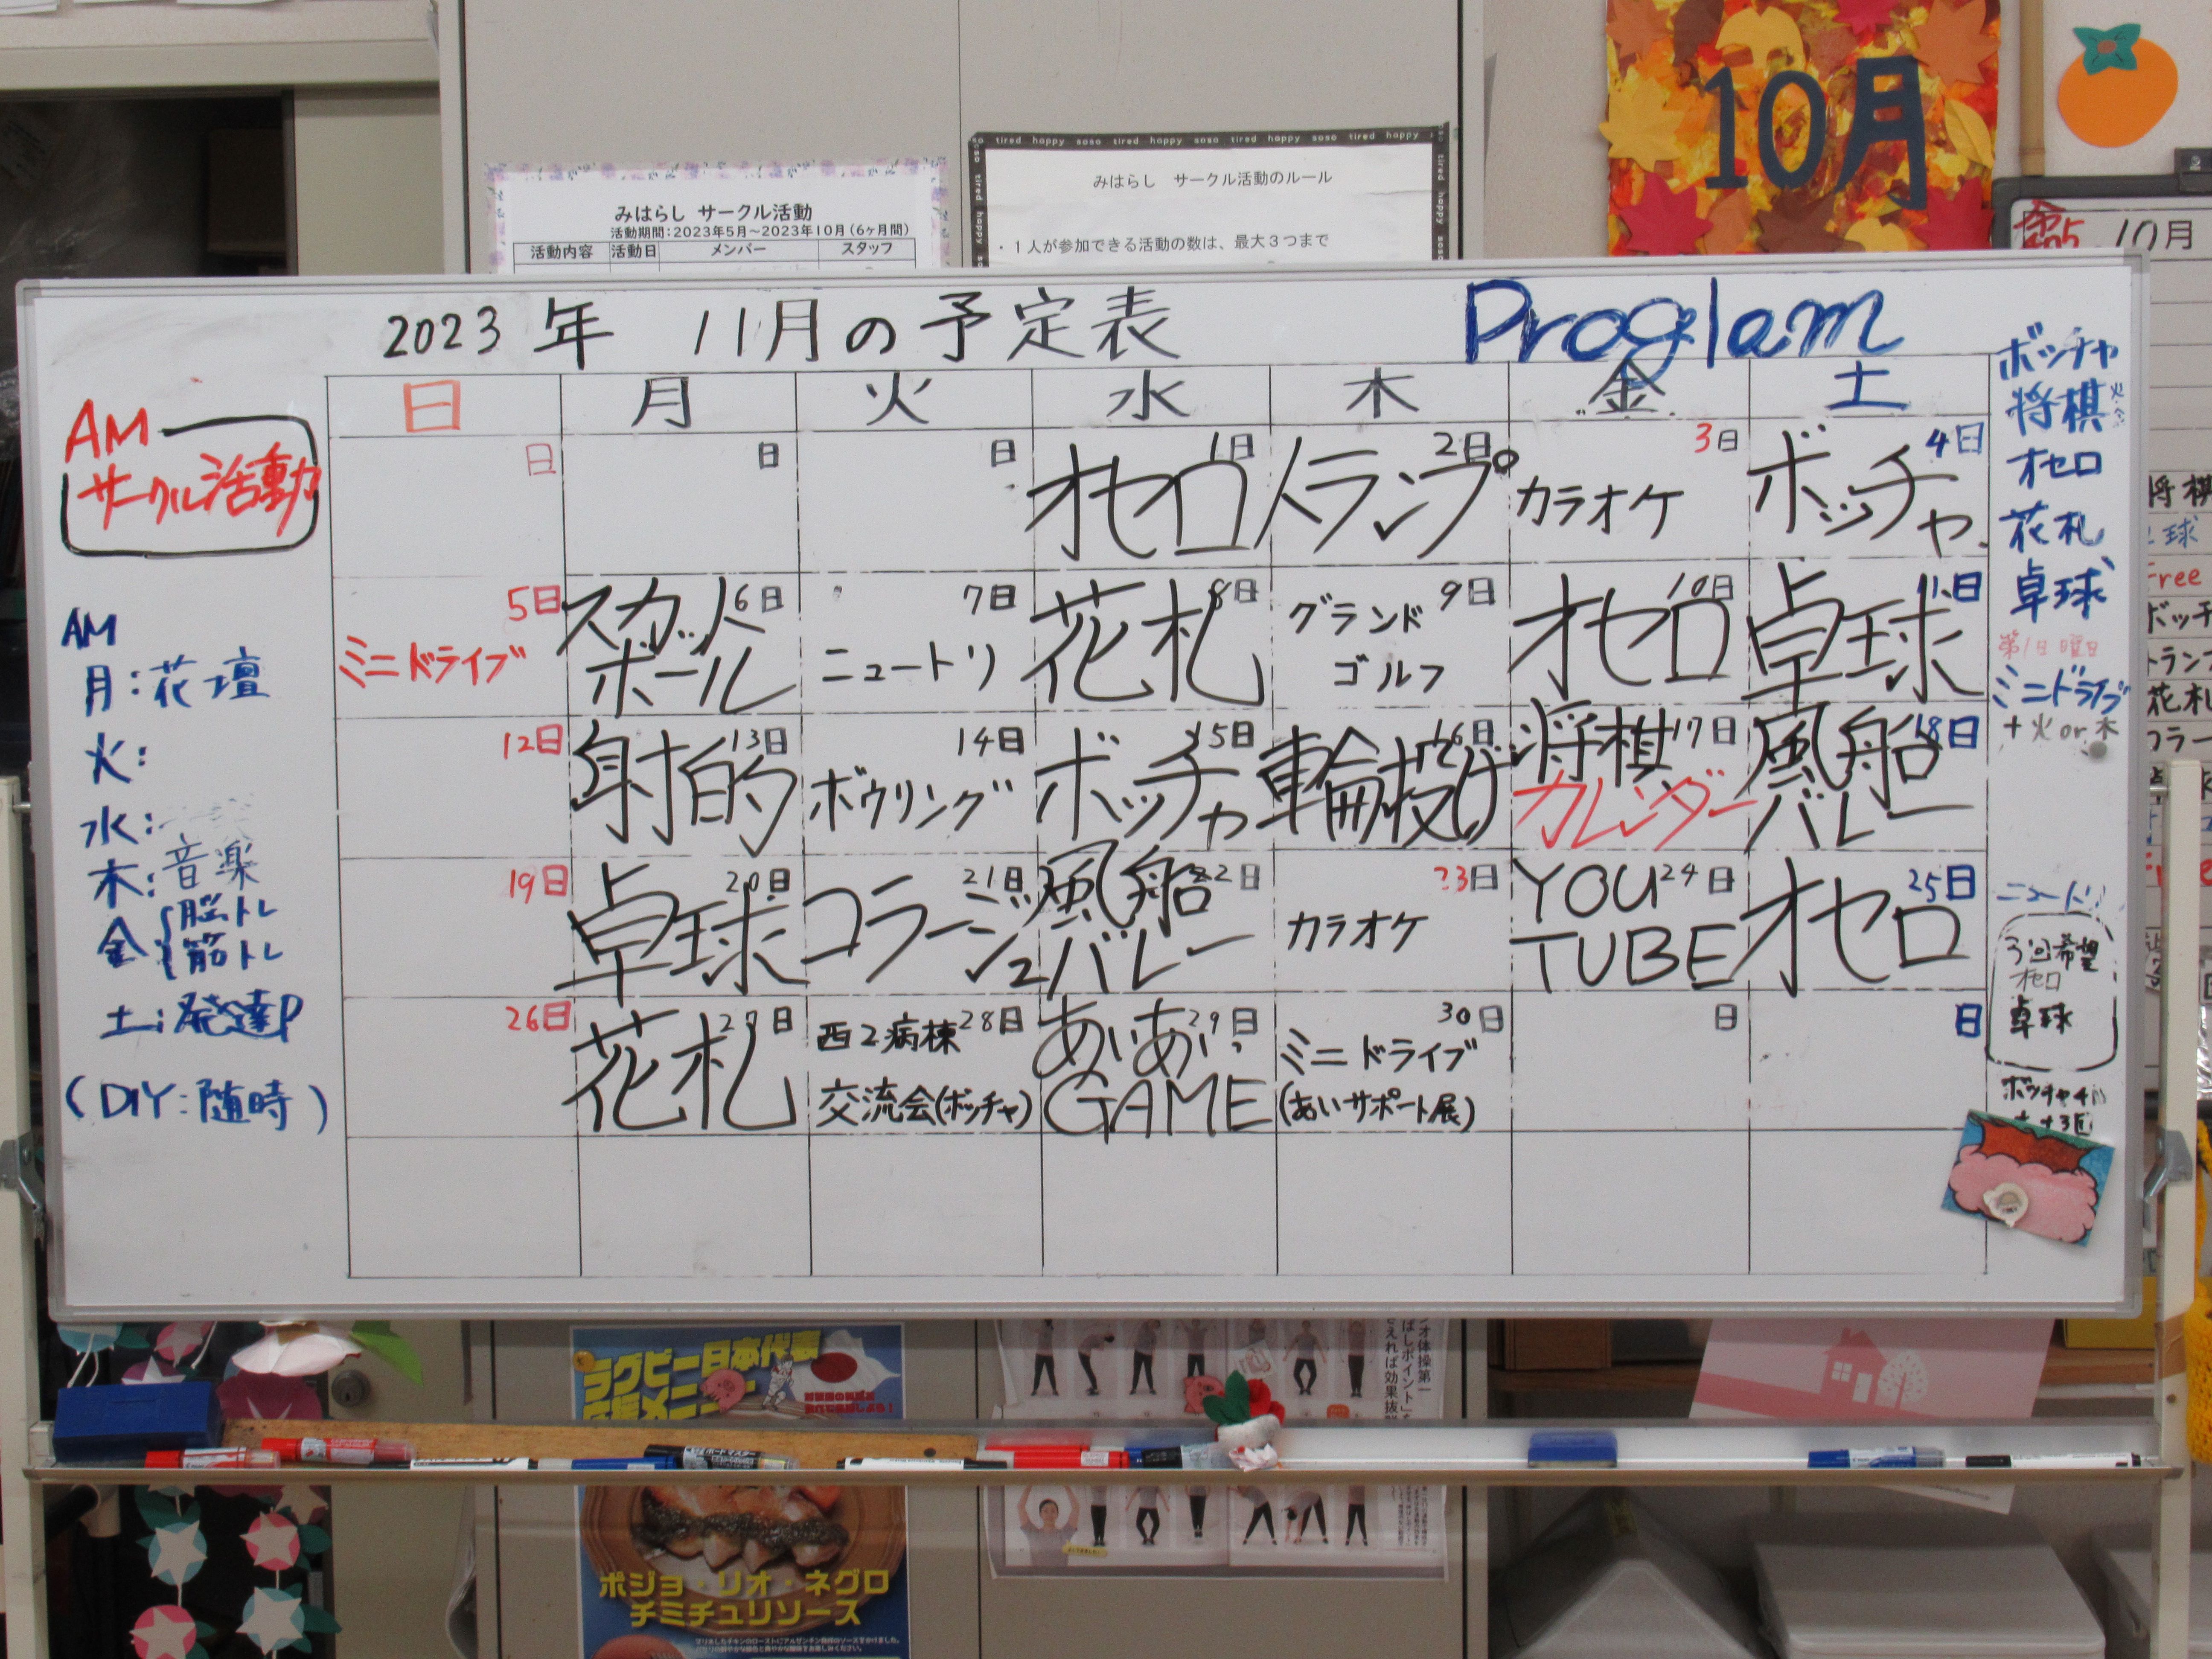 10月
so tired happy soso tired happy soso tired happy soso tired happy
みはらし サークル活動
活動期間：2023年5月～2023年10月（6ヶ月間）
活動内容 活動日 メンバー スタッフ
みはらし サークル活動のルール
・1人が参加できる活動の数は、最大3つまで
10月
2023年 11月の予定表 Proglam
日 月 火 水 木 金 土
日 日 日 1日 2日 3日 4日
オセロ トランプ カラオケ ボッチャ
5日 6日 7日 8日 9日 10日 11日
ミニドライブ スカットボール ニュートリ 花札 グランドゴルフ オセロ 卓球
12日 13日 14日 15日 16日 17日 18日
射的 ボウリング ボッチャ 輪投げ 将棋 風船バレー
カレンダー
19日 20日 21日 22日 23日 24日 25日
卓球 コラージュ 風船バレー カラオケ YOU TUBE オセロ
26日 27日 28日 29日 30日 日 日
花札 西2病棟 あいあい GAME ミニドライブ
交流会(ボッチャ) (あいサポート展)
AM
サークル活動
AM
月:花壇
火:
水:
木:音楽
金:脳トレ
筋トレ
土:発達P
(DIY:随時)
ボッチャ
将棋
オセロ
花札
卓球
第1日曜日
ミニドライブ
+火or木
ニュートリ
3回希望
オセロ
卓球
将棋
球
Free
花札
ラグビー日本代表
ポジョ・リオ・ネグロ
チミチュリソース